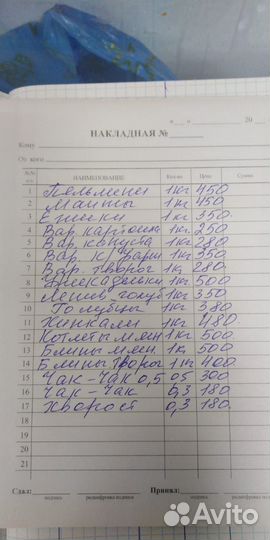 « » 20
НАКЛАДНАЯ №
Кому
От кого
№№ п/п НАИМЕНОВАНИЕ Кол-во Цена Сумма
1 Пельмени 1кг 450
2 Манты 1кг 450
3 Ежики 1кг 350
4 Вар. картошка 1кг. 250
5 Вар. капуста 1кг 280
6 Вар. к/фарш 1кг 350
7 Вар. творог 1к 280
8 Фрикадельки 1кг 500
9 Ленив. голуб 1кг 350
10 Голубцы 1кг 380
11 Хинкали 1кг 480
12 Котлеты мян 1кг 500
13 Блины мян. 1к 500
14 Блины творог 1кг 400
15 Чак-Чак 0,5 05 300
16 Чак-Чак 0,3 180
17 Хворост 0,3 180
18
19
20
21
Сдал: Принял:
подпись расшифровка подписи подпись расшифровка подписи
Avito